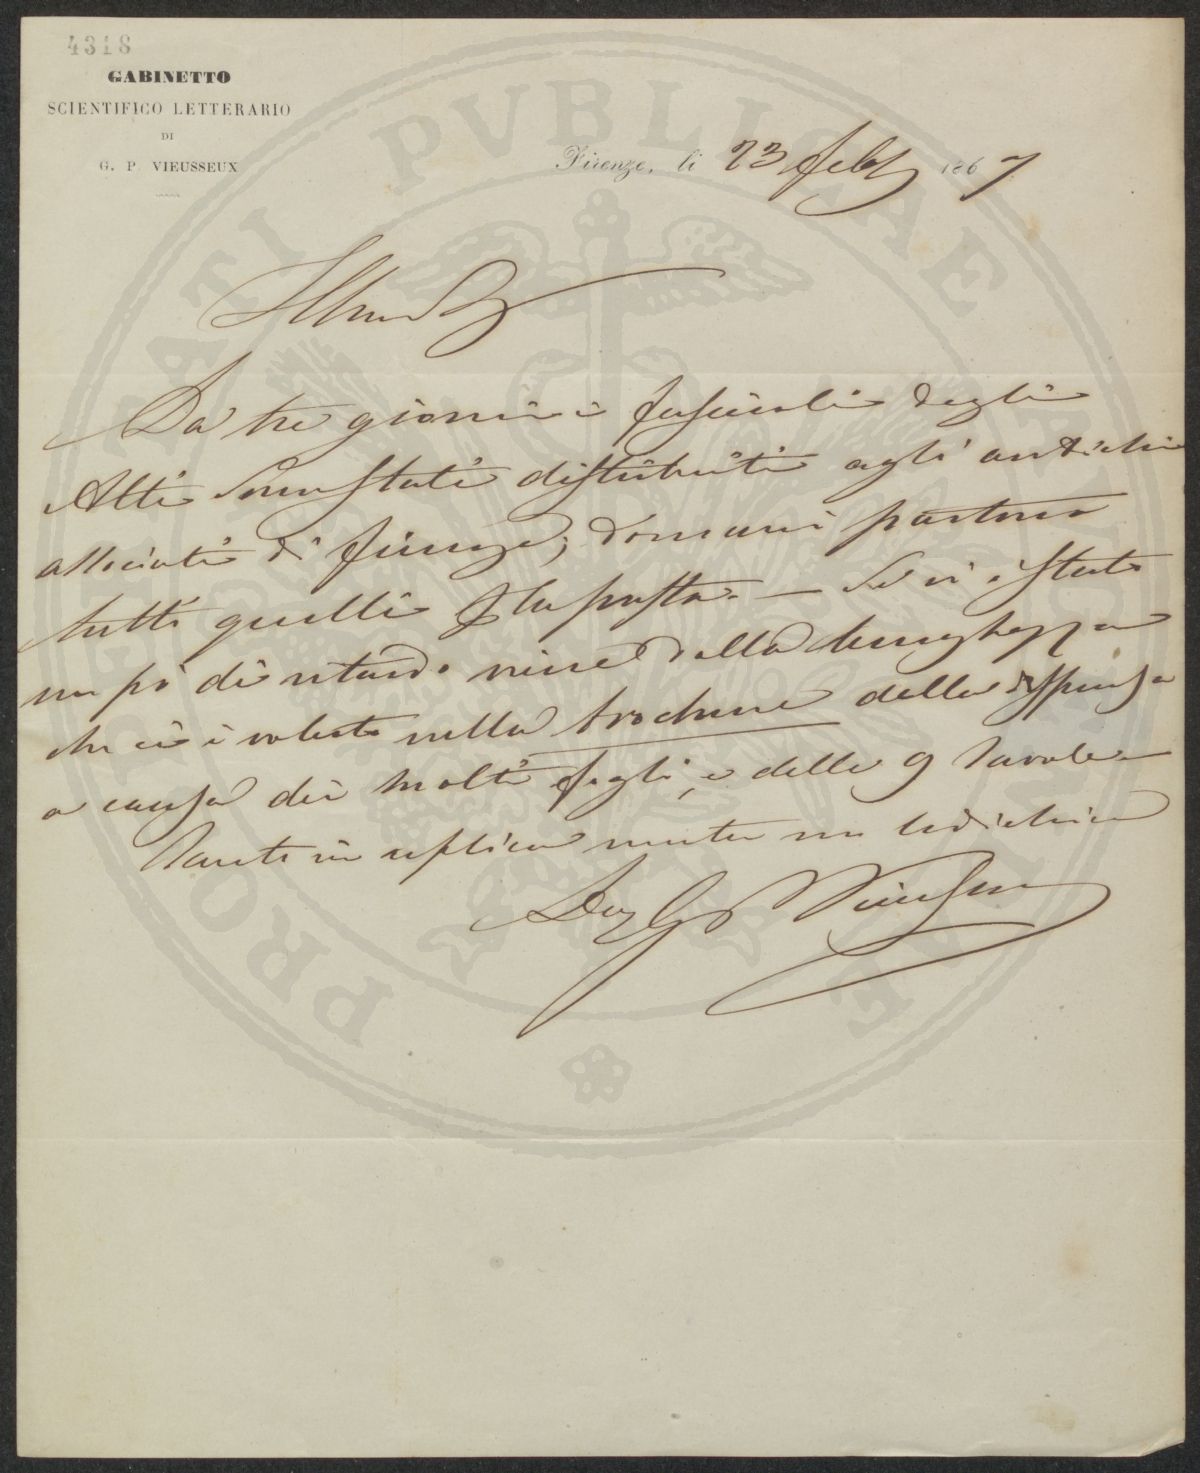 4318
GABINETTO
SCIENTIFICO LETTERARIO
DI
G. P. VIEUSSEUX
Firenze, li 23 febb 1867
Da tre giorni i fascicoli degli
Atti sono stati distribuiti agli antichi
associati di Firenze; domani partono
tutti quelli p la posta. — Se vi è stato
un po' di ritardo viene dalla lunghezza
che ci è voluta nella brochure della dispensa
a causa dei molti fogli, e delle 9 tavole —
Tanto in replica mentre mi
Vieusseux
PROCVRATI PVBLICAE